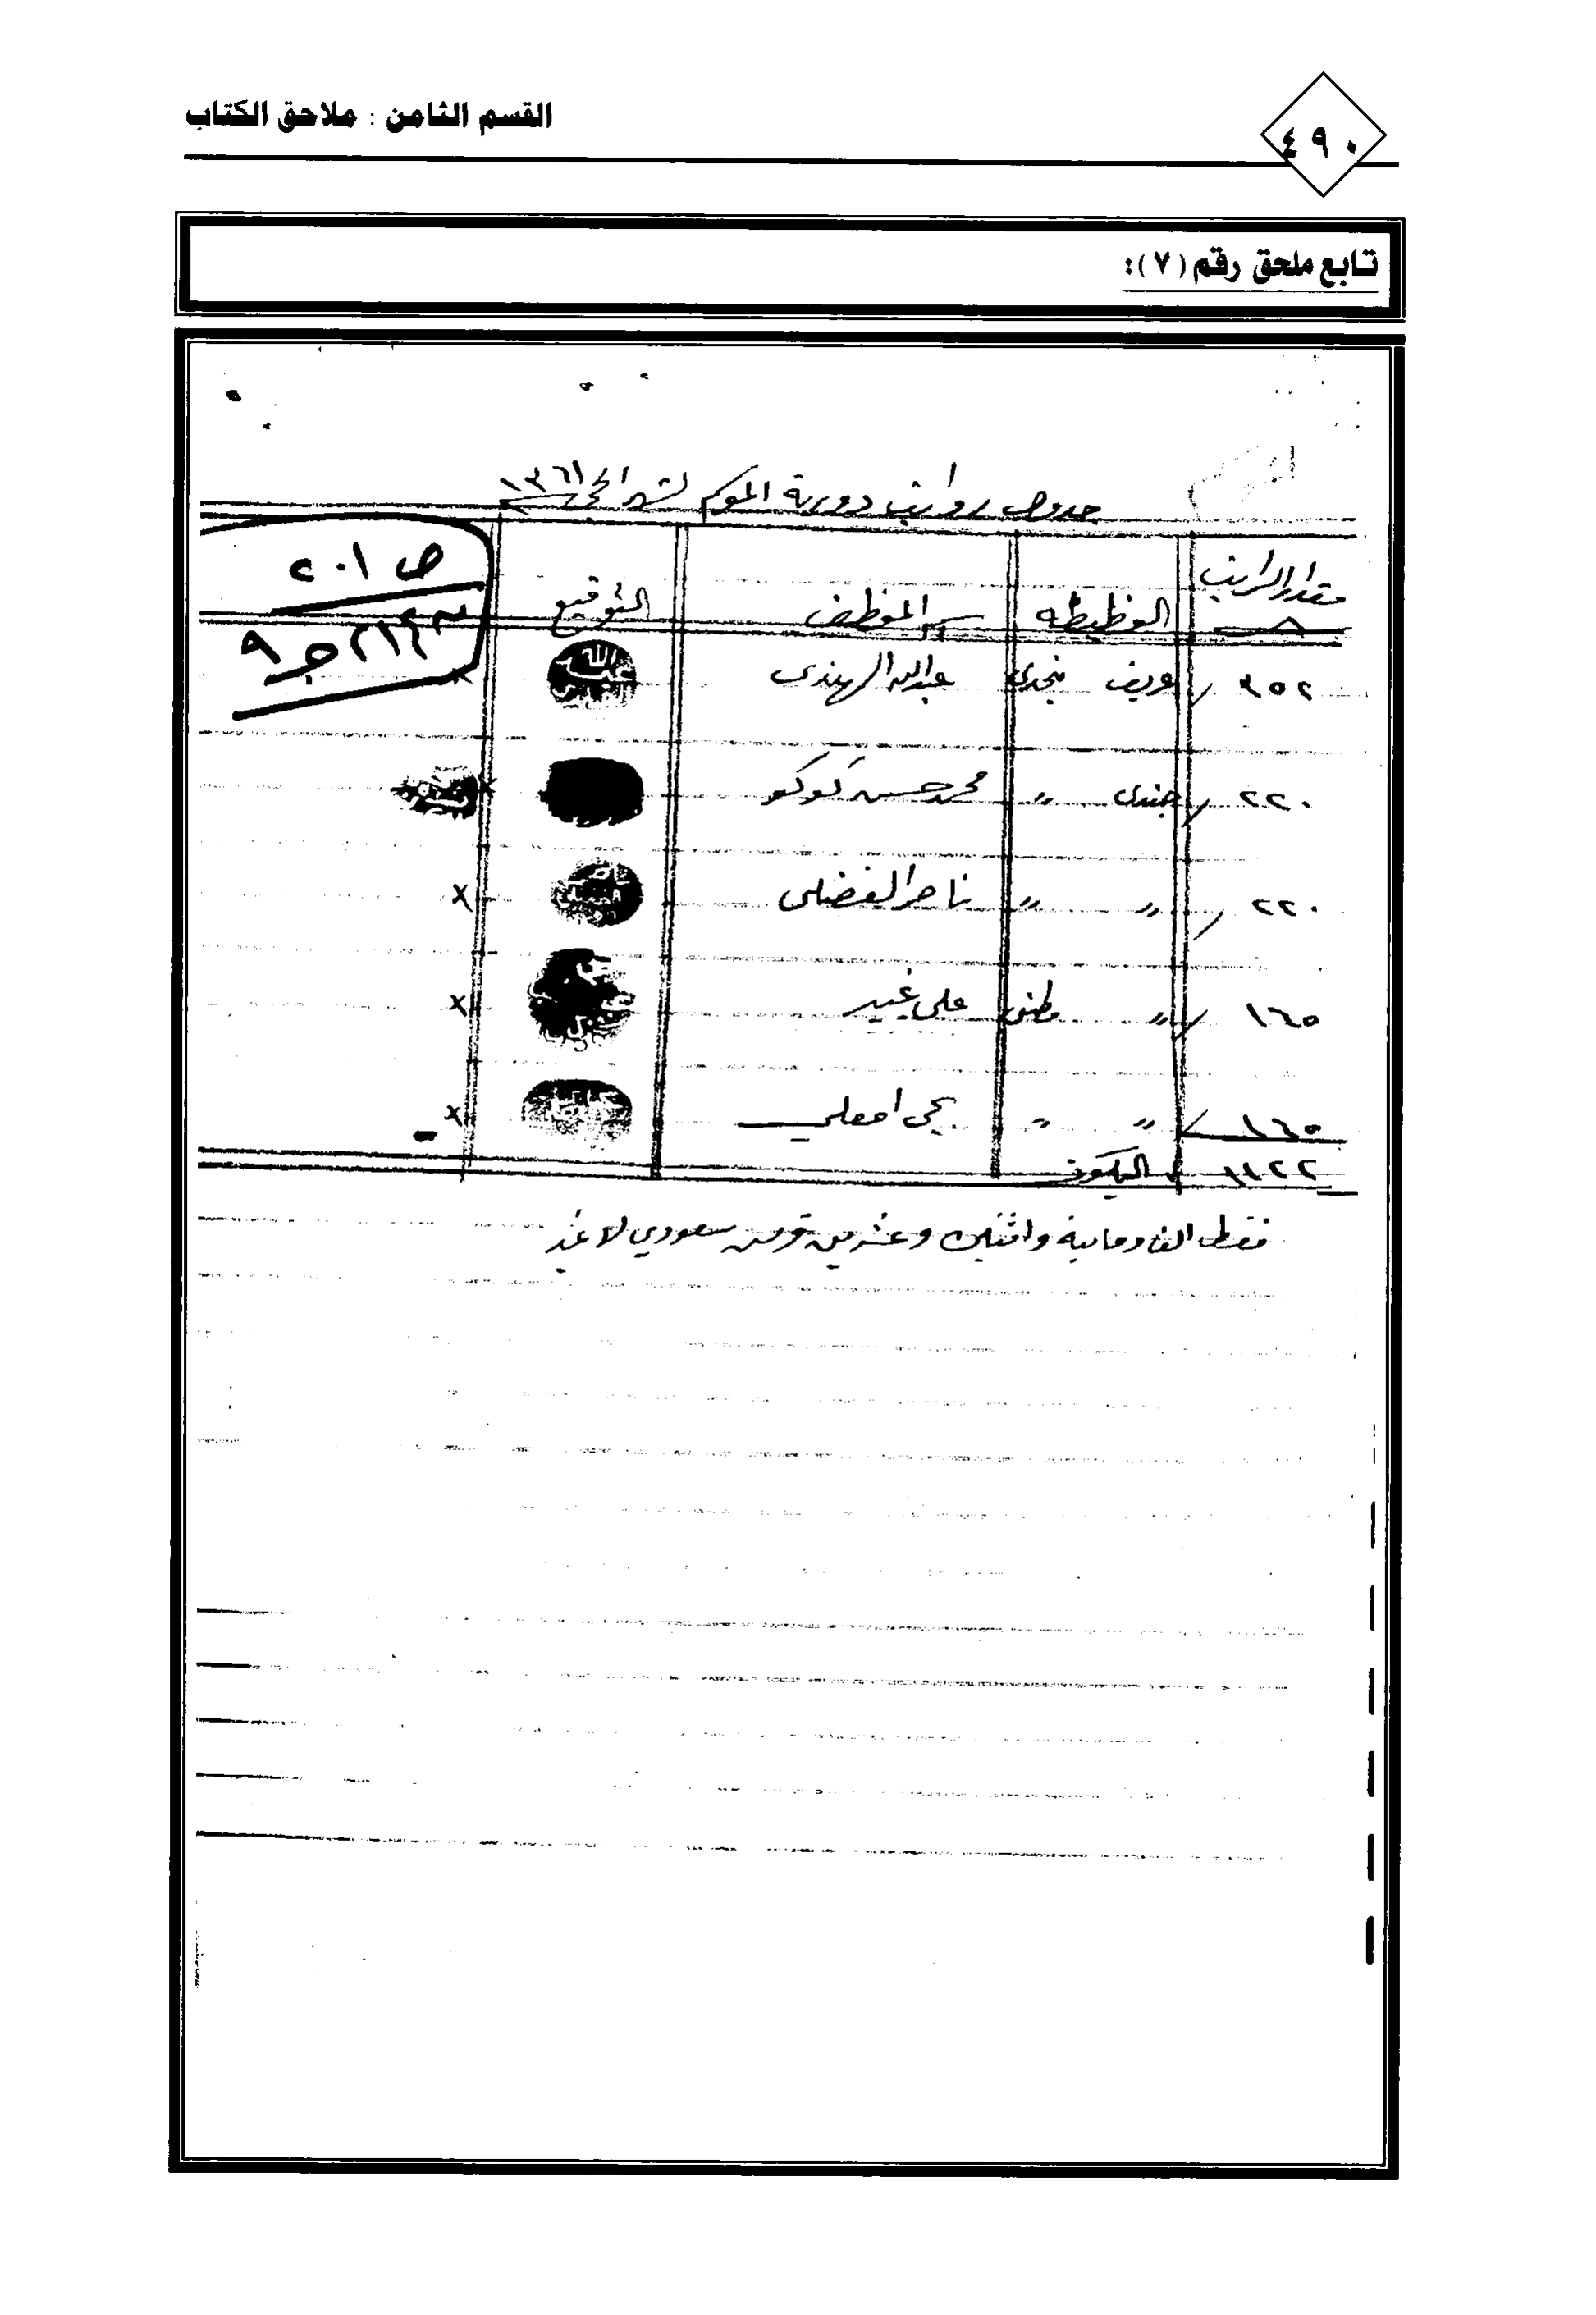 القسم الثامن : ملاحق الكتاب
٤٩٠
تابع ملحق رقم (٧):
جدول رواتب دورية الموسم لشهر الحجة ١٣٦١
مقدار الراتب الوظيفه اسم الموظف التوقيع
ص ٢٠١
ج ٩
٣٥٢ عريف نجدي عبدالله الهندي
٢٢٠ جندي " محمد حسن كوكو
٢٢٠ " " ناصر الفضلي
١٦٥ " وطني علي غبير
١٦٥ " " يحي امعلي
١١٢٢ اليكون
فقط الف ومايه واثنين وعشرين قرش سعودي لا غير